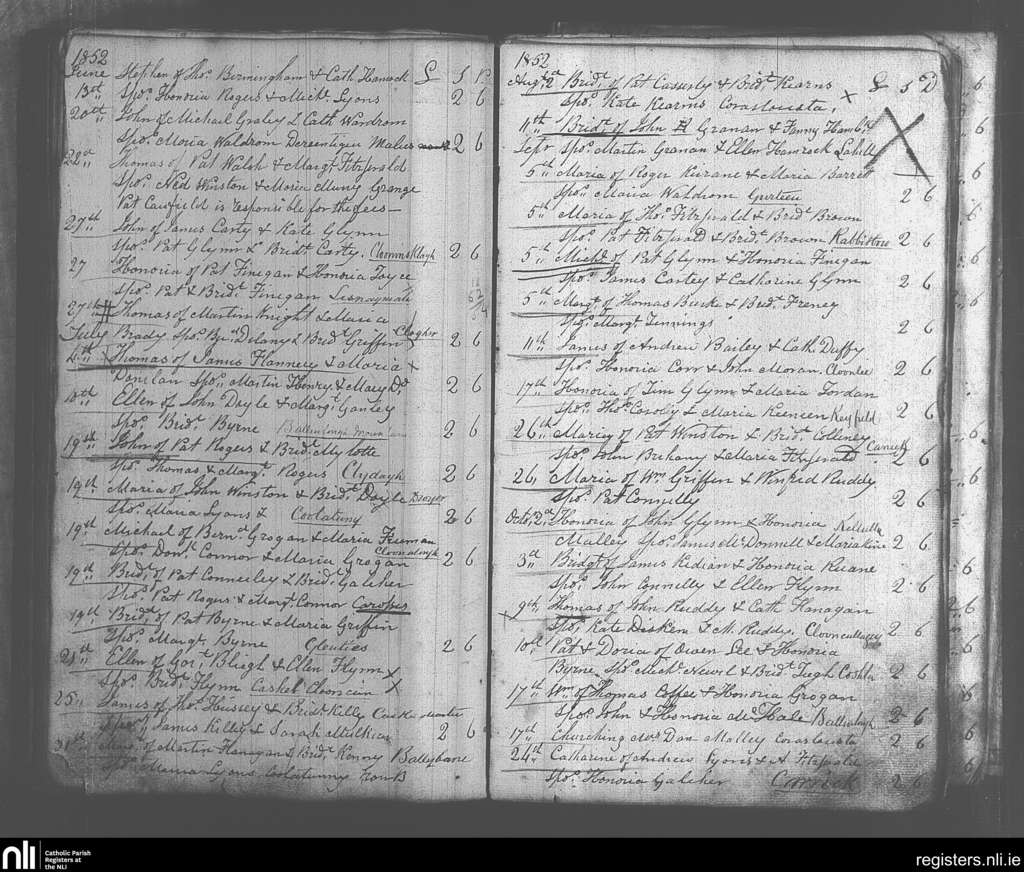 1852
June Stephen of Thos. Birmingham & Cath Hamrock £ S P
13th Spos. Honoria Rogers & Michl. Lyons 2 6
20th John of Michael Graley & Cath Wardrom
Spos. Maria Waldrom 2 6
22nd Thomas of Pat Walsh & Margt. Fitzgerald
Spos. Ned Winston & Maria Grange
Pat Caulfield is responsible for the fees
27th John of James Carty & Kate Glynn
Spos. Pat Glynn & Bridt. Carty. 2 6
27 Honoria of Pat Finegan & Honoria Joyce
Spos. Pat & Bridt. Finegan
27th Thomas of Martin Knight & Maria
July Brady Spos. Delany & Bridt Griffin Clogher 2 6
4th Thomas of James Flannery & Maria
Donelan Spos. Martin Henry & Mary Do. 2 6
18th Ellen of John Doyle & Margt. Ganley
Spos. Bridt. Byrne 2 6
19th John of Pat Rogers & Bridt. Mylotte
Spos. Thomas & Margt. Rogers Clydagh 2 6
19th Maria of John Winston & Bridt. Doyle
Spos. Maria Lyons & Coolatinny 2 6
19th Michael of Bernd. Grogan & Maria Freeman
Spos. Donl. Connor & Maria Grogan 2 6
19th Bridt. of Pat Conneeley & Bridt. Galcher
Spos. Pat Rogers & Margt. Connor
19th Bridt. of Pat Byrne & Maria Griffin
Spos. Margt. Byrne 2 6
21st Ellen of Bleigh & Ellen Flynn X
Spos. Bridt. Flynn Cashel X
25 James of Thos. Hussey & Bridt. Killy
Spos. James Killy & Sarah Mulkien 2 6
31st of Martin Hanagan & Bridt. Kenny Ballybane
Maria Lyons
1852
Augt. 2nd Bridt. of Pat Casserly & Bridt. Kearns X £ S D
Spos. Kate Kearns
11th Bridt. of John Granan & Fanny
Sepr Spos. Martin Granan & Ellen Hamrock
5th Maria of Roger Kirane & Maria Barrett
Spos. Maria Waldrom Gurteen 2 6
5th Maria of Thos. Fitzgerald & Bridt. Brown
Spos. Pat Fitzgerald & Bridt. Brown 2 6
5th Michl. of Pat Glynn & Honoria Finegan
Spos. James Cartey & Catharine Glynn 2 6
5th Margt. of Thomas Burke & Bridt. Freney
Spos. Margt. Jennings 2 6
11th James of Andrew Bailey & Cath. Duffy
Spos. Honoria Corr & John Moran. Cloonlee 2 6
17th Honoria of Tim Glynn & Maria Jordan
Spos. Thos. & Maria Keeneen Keyfield 2 6
26th Maria of Pat Winston & Bridt. Colleney
Spos. John & Maria Fitzgerald 2 6
26 Maria of Wm. Griffen & Winfred Ruddy
Spos. Pat Connelly 2 6
Octo. 2nd Honoria of John Glynn & Honoria
Malley Spos. James McDonnell & Maria 2 6
3d Bridgt. of James Kedian & Honoria Kuane
Spos. John Connelly & Ellen Flynn 2 6
9th Thomas of John Ruddy & Cath Flanagan
Spos. Kate Disken & M. Ruddy. 2 6
10th Pat & Doria of Owen Lee & Honoria
Byrne Spos. Michl. Newel & Bridt. 2 6
17th Wm. of Thomas Coffee & Honoria Grogan
Spos. John & Honoria McHale 2 6
17th Churching Mrs. Dan Malley 2 6
24th Catharine of Andrew Lyons & A Fitzgerald
Spos. Honoria Galcher Carrick 2 6
nli Catholic Parish Registers at the NLI
registers.nli.ie